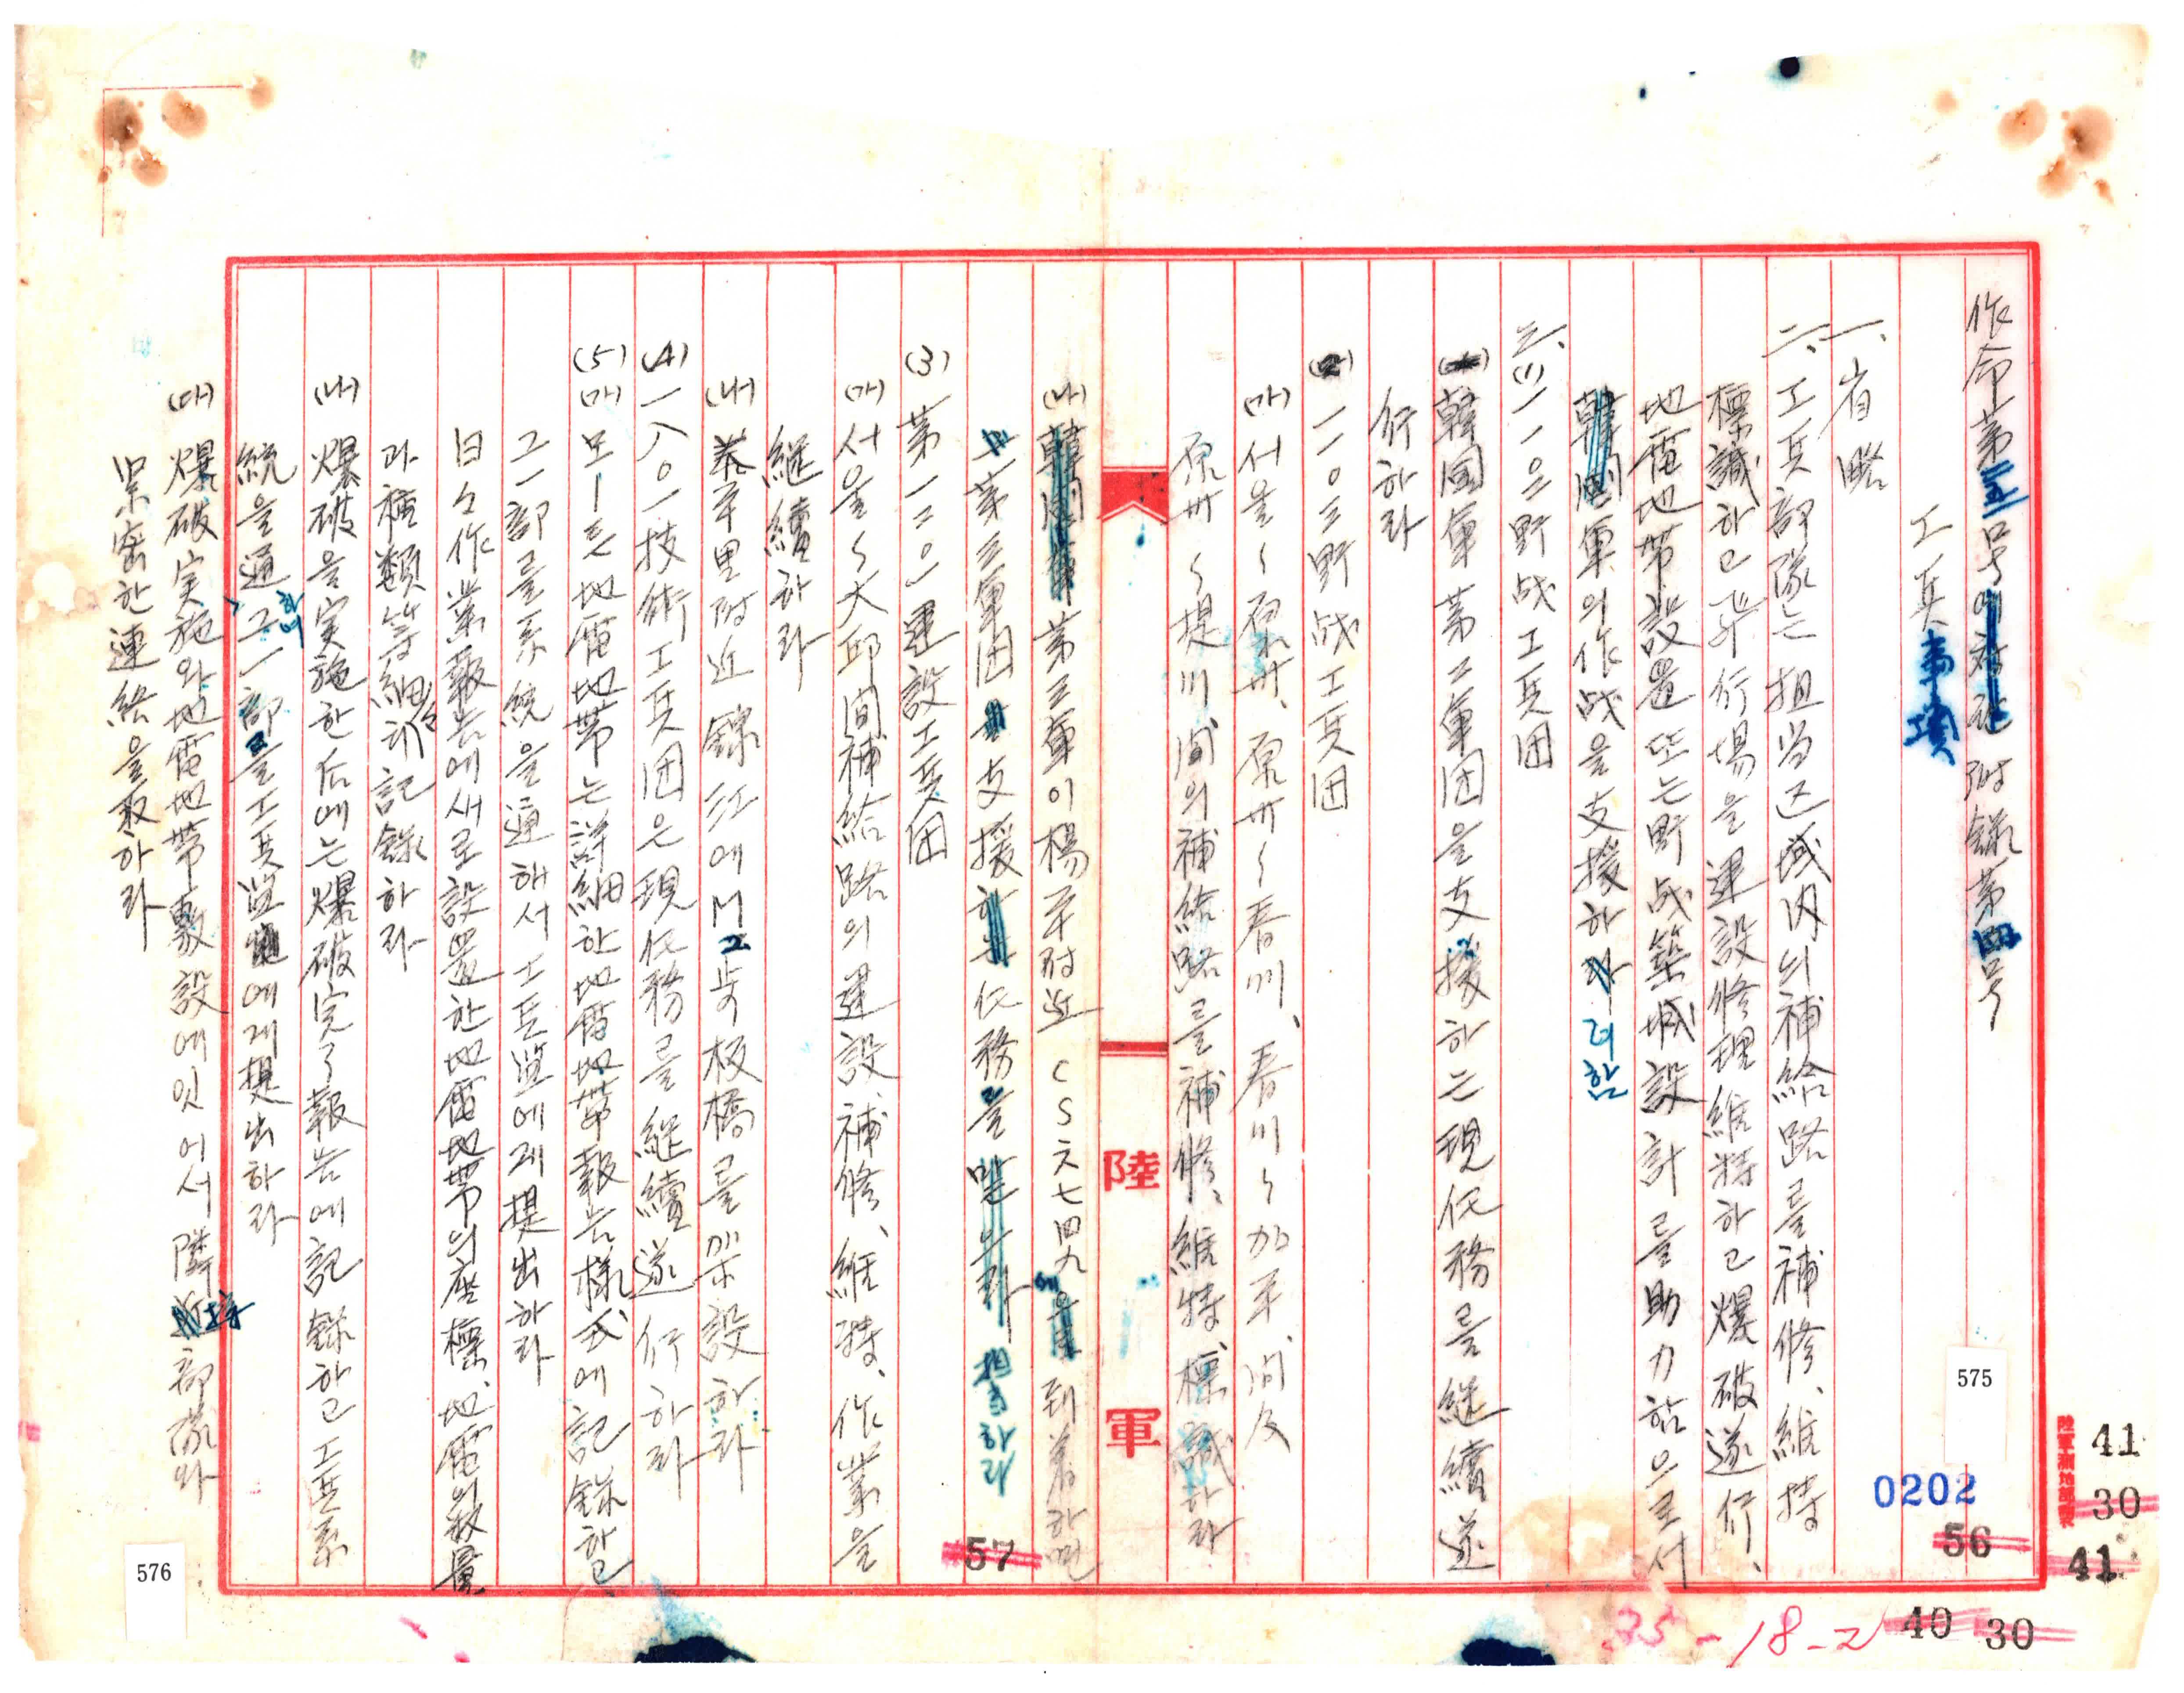 作命第三五号 附錄第四号
工兵事項
一、省略
二、工兵部隊는 担当区域內의 補給路를 補修、維持
標識하고 飛行場을 建設修理維持하고 爆破遂行、
地雷地帶設置 또는 野战築城設計를 助力함으로서
軍의 作战을 支援하 려함
三、(1) 一一〇三野战工兵団
韓国軍第二軍団을 支援하는 現任務를 継續遂
行하라
(2) 一一〇三野战工兵団
(가) 서울~原州、原州~春川、春川~加平、间及
原州~提川间의 補給路를 補修、維持、標識하라
(나) 第三軍이 楊平附近 CS六七四九에 到着하면
第三軍団 支援 任務를 担当하라
(3) 第一二〇一建設工兵団
(가) 서울~大邱间補給路의 建設、補修、維持、作業을
継續하라
(나) 里附近 錦江에 M2 步板橋를 架設하라
(4) 一八〇一技術工兵団은 現任務를 継續遂行하라
(5) (가) 모-든 地雷地帶는 詳細한 地雷地帶報告樣式에 記錄하고
그 一部를 系統을 通해서 工兵監에게 提出하라
日々作業報告에 새로 設置한 地雷地帶의 座標、地雷의 数量
과 種類等을 細히 記錄하라
(나) 爆破을 実施한 后에는 爆破完了報告에 記錄하고 工兵系
統을 通하여 그 一部를 工兵監에게 提出하라
(다) 爆破実施와 地雷地帶敷設에 있어서 隣接部隊와
緊密한 連絡을 取하라
陸
軍
575
576
0202
41
30
56
41
40
30
57
35-18-2